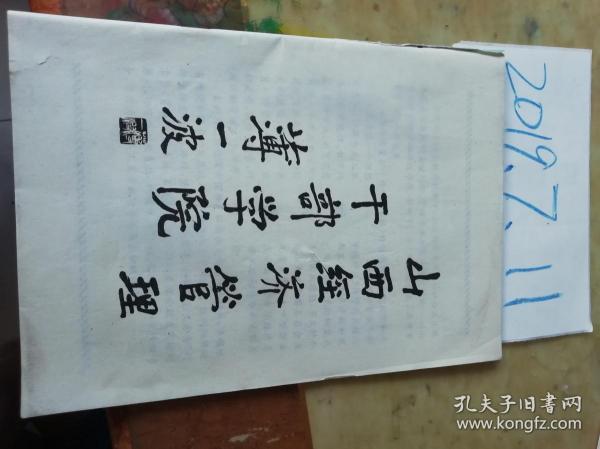 山西经济管理
干部学院
薄一波
2019.7.11
孔夫子旧书网
www.kongfz.com